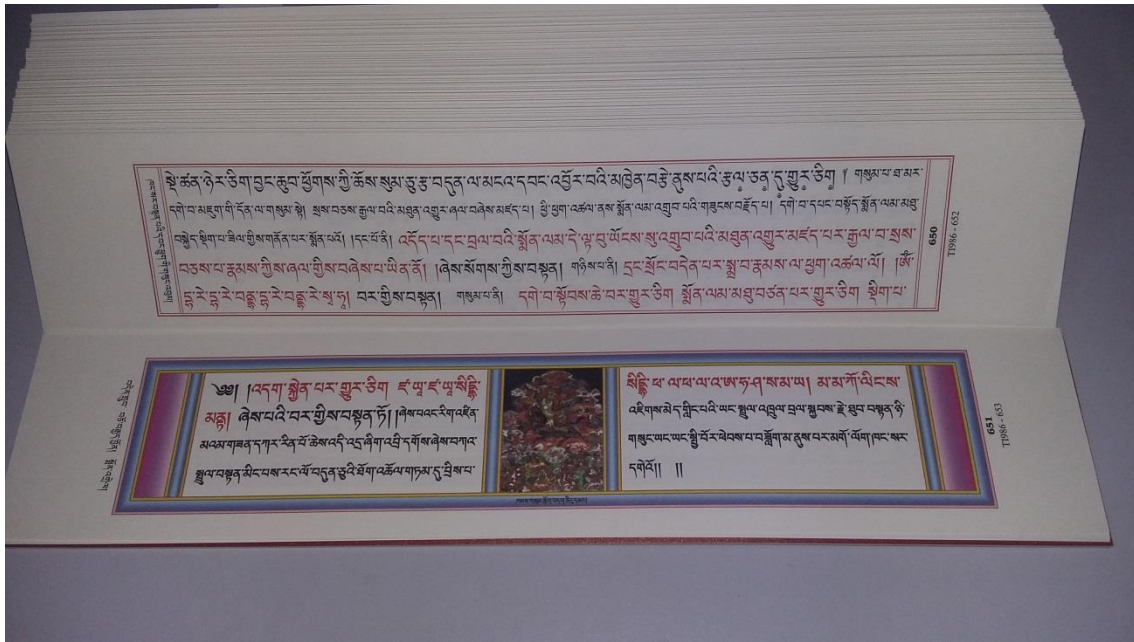 སྡེ་ཚན་ཉེར་ཅིག་བྱང་ཆུབ་ཕྱོགས་ཀྱི་ཆོས་སུམ་ཅུ་རྩ་བདུན་ལ་མངའ་དབང་འབྱོར་བའི་མཁྱེན་བརྩེ་ནུས་པའི་རྩལ་ཅན་དུ་གྱུར་ཅིག །གསུམ་པ་ཐ་མར་
དགེ་བ་མཇུག་གི་དོན་ལ་གསུམ་སྟེ། སྲས་བཅས་རྒྱལ་བའི་མཐུན་འགྱུར་ཞལ་བཞེས་མཛད་པ། ཕྱི་ཕྱག་འཚལ་ནས་སྨོན་ལམ་འགྲུབ་པའི་གཟུངས་བརྗོད་པ། དགེ་བ་དཔང་བསྟོད་སྨོན་ལམ་མཐུ་
བསྐྱེད་སྡིག་པ་ཟིལ་གྱིས་གནོན་པར་སྨོན་པའོ། །དང་པོ་ནི། འདོད་པ་དང་བྲལ་བའི་སྨོན་ལམ་དེ་ལྟ་བུ་ཡོངས་སུ་འགྲུབ་པའི་མཐུན་འགྱུར་མཛད་པར་རྒྱལ་བ་སྲས་
བཅས་པ་རྣམས་ཀྱིས་ཞལ་གྱིས་བཞེས་པ་ཡིན་ནོ། །ཞེས་སོགས་ཀྱིས་བསྟན། གཉིས་པ་ནི། དྲང་སྲོང་བདེན་པར་སྨྲ་བ་རྣམས་ལ་ཕྱག་འཚལ་ལོ། །ཨོཾ་
དྷ་རེ་དྷ་རེ་བནྡྷ་རེ་སྭ་ཧཱ། བར་གྱིས་བསྟན། གསུམ་པ་ནི། དགེ་བ་སྟོབས་ཆེ་བར་གྱུར་ཅིག སྨོན་ལམ་མཐུ་བཙན་པར་གྱུར་ཅིག སྡིག་པ་
650
TI986 - 652
༄༅། །འདག་སྐྱེན་པར་གྱུར་ཅིག ཛ་ཡཱ་ཛ་ཡཱ་སིདྡྷི་
མནྟ། ཞེས་པའི་བར་གྱིས་བསྟན་ཏོ། །ཞེས་པའང་རིག་འཛིན་
མའམ་གཟན་དཀར་རིན་པོ་ཆེས་འདི་འདྲ་ཞིག་འབྲི་དགོས་ཞེས་བཀའ་
སྩལ་བསྟན་མིང་པས་རང་ལོ་བདུན་ཅུའི་ཐོག་འཆོལ་གཏམ་དུ་བྲིས་པ་
སིདྡྷི་ཕ་ལ་ཕ་ལ་ཨ་ཧ་ཤ་ས་མ་ཡ། མ་མ་ཀོ་ལིང་ས་
འཇིགས་མེད་གླིང་པའི་ཡང་སྤྲུལ་འཁྲུལ་བྲལ་སྐྱབས་རྗེ་ཐུབ་བསྟན་ཧི་
གསུང་ཡང་ཡང་སྤྱི་བོར་ཕེབས་པ་བཟློག་མ་ནུས་པར་མགོ་ལོག་ཁང་སར་
དགེའོ།། །།
651
TI986 - 653